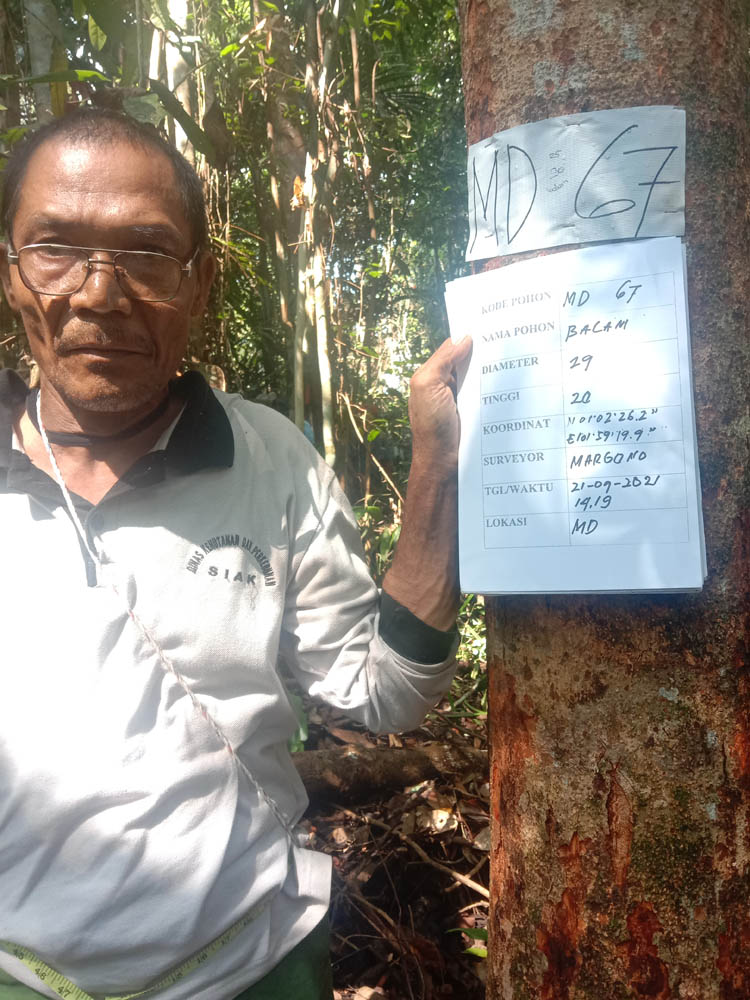 MD 67
KODE POHON MD 67
NAMA POHON BALAM
DIAMETER 29
TINGGI 20
KOORDINAT N 01°02'26.2"
E101°59'19.9"
SURVEYOR MARGONO
TGL/WAKTU 21-09-2021
14.19
LOKASI MD
DINAS KEHUTANAN DAN PERKEBUNAN
SIAK
45
46
47